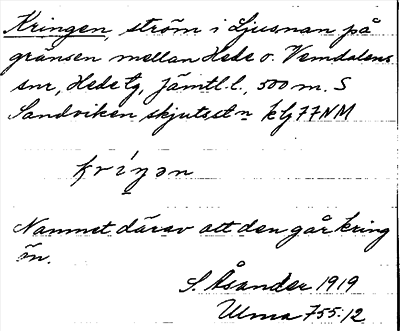 Kringen, ström i Ljusnan på
gränsen mellan Hede o. Vemdalens
snr, Hede tg, Jämtl. l., 500 m. S
Sandviken skjutsstn kbl 77NM
kríŋən
Namnet därav att den går kring
ön.
S. Åsander 1919
Ulma 755:12